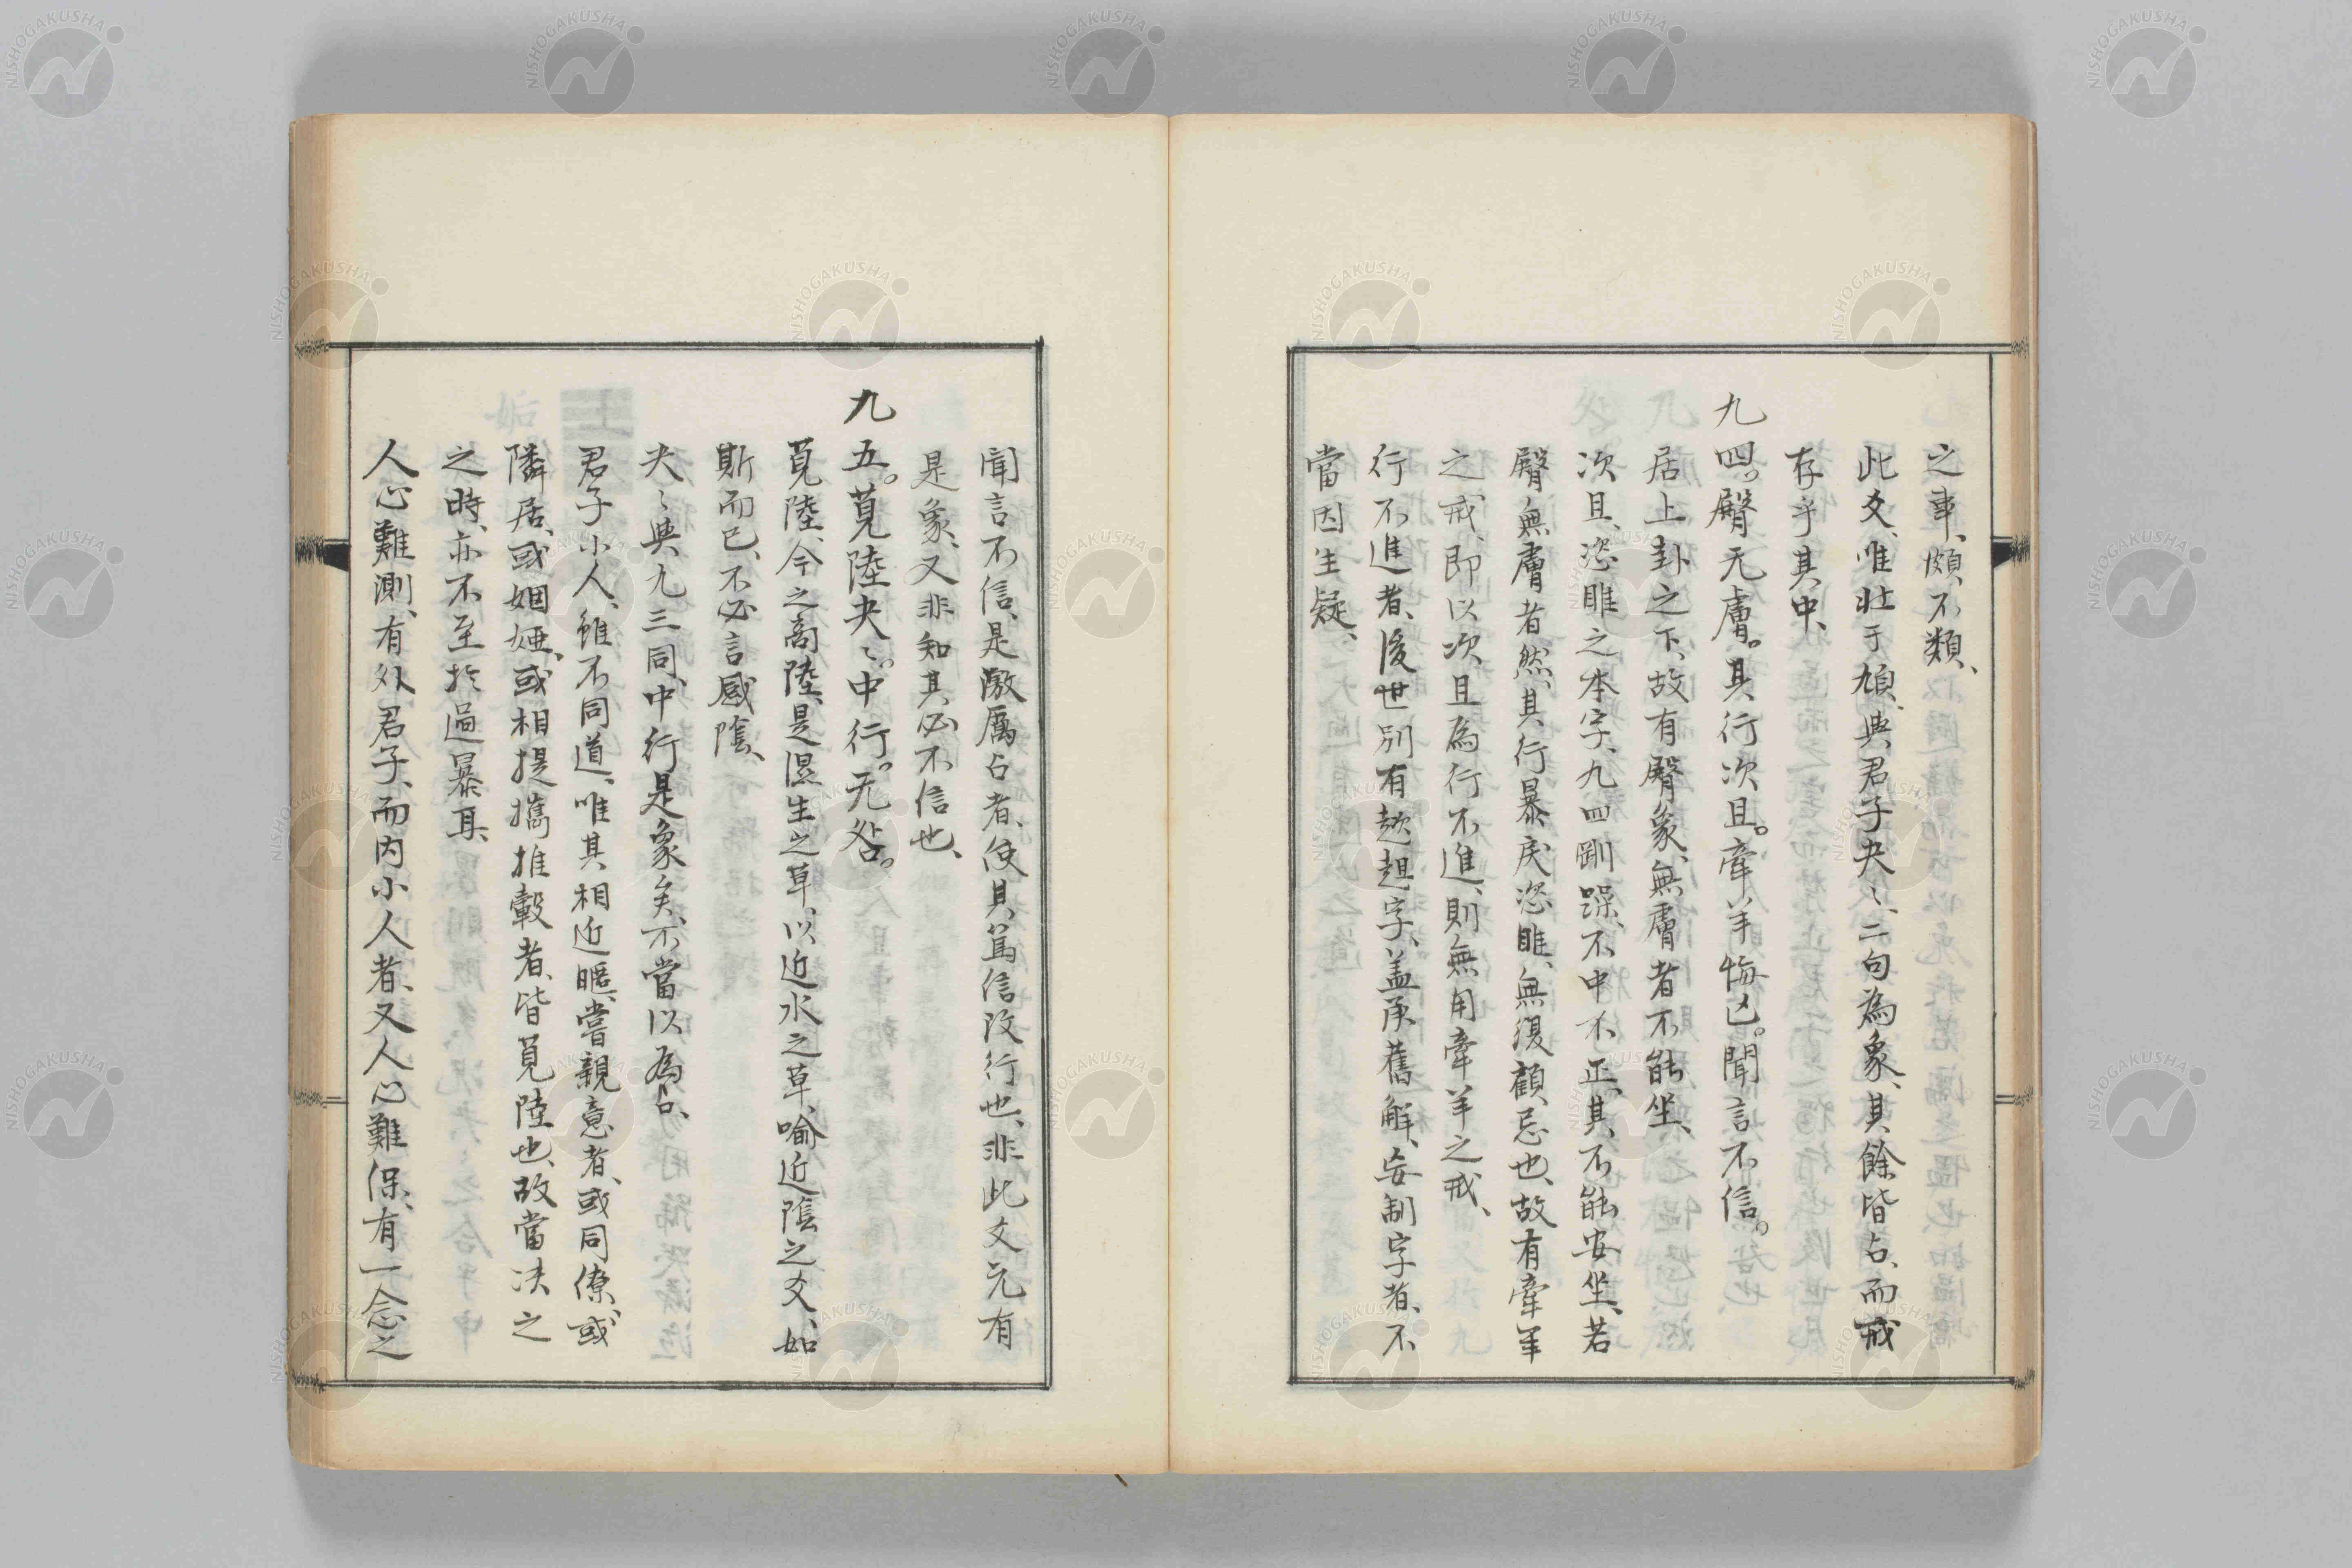 之事、頗不類、
此爻、唯壯于頄、與君子夬〻、二句為象、其餘皆占、而戒
存乎其中、
九四。臀无膚。其行次且。牽羊悔亡。聞言不信。
居上卦之下、故有臀象、無膚者不能坐、
次且、恣睢之本字、九四剛躁、不中不正、其不能安坐、若
臀無膚者然、其行暴戾恣睢、無復顧忌也、故有牽羊
之戒、即以次且為行不進、則無用牽羊之戒、
行不進者、後世別有趑趄字、盖承舊解、妄制字者、不
當因生疑、
聞言不信、是激厲占者、使其篤信改行也、非此爻元有
是象、又非知其必不信也、
九五。莧陸夬〻。中行。无咎。
莧陸、今之商陸、是濕生之草、以近水之草、喻近陰之爻、如
斯而已、不必言感陰、
夬〻與九三同、中行是象矣、不當以為占、
君子小人、雖不同道、唯其相近暱、嘗親意者、或同僚、或
隣居、或姻婭、或相提攜推轂者、皆莧陸也、故當决之
之時、亦不至於過暴耳、
人心難測、有外君子、而内小人者、又人心難保、有一念之